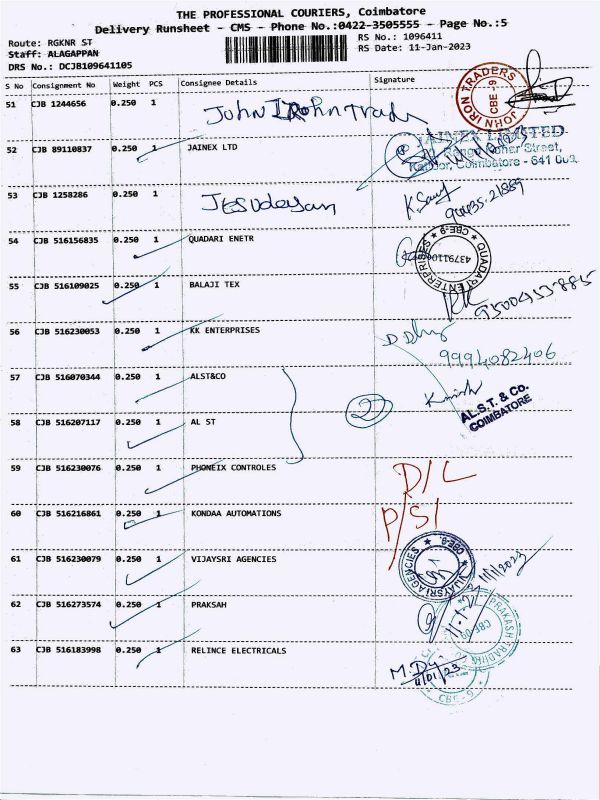 THE PROFESSIONAL COURIERS, Coimbatore
Delivery Runsheet - CMS - Phone No.:0422-3505555 - Page No.:5
Route: RGKNR ST
RS No.: 1096411
Staff: ALAGAPPAN
RS Date: 11-Jan-2023
DRS No.: DCJB109641105
S No Consignment No Weight PCS Consignee Details Signature
51 CJB 1244656 0.250 1 John Iron Trade
JOHN IRON TRADERS CBE-9
52 CJB 89110837 0.250 1 JAINEX LTD
JAINEX LIMITED
Street,
Coimbatore - 641 009.
53 CJB 1258286 0.250 1 Jesudayan
54 CJB 516156835 0.250 1 QUADARI ENETR
QUADARI ENTERPRISES CBE-9
55 CJB 516109025 0.250 1 BALAJI TEX
56 CJB 516230053 0.250 1 KK ENTERPRISES
9994082406
57 CJB 516070344 0.250 1 ALST&CO
2
AL.S.T. & Co.
COIMBATORE
58 CJB 516207117 0.250 1 AL ST
59 CJB 516230076 0.250 1 PHONEIX CONTROLES
D/L
60 CJB 516216861 0.250 1 KONDAA AUTOMATIONS
P/S1
61 CJB 516230079 0.250 1 VIJAYSRI AGENCIES
VIJAYSRI AGENCIES CBE-9
11/1/2023
62 CJB 516273574 0.250 1 PRAKSAH
PRAKASH TRADING CBE-09
63 CJB 516183998 0.250 1 RELINCE ELECTRICALS
11/01/23
CBE-9